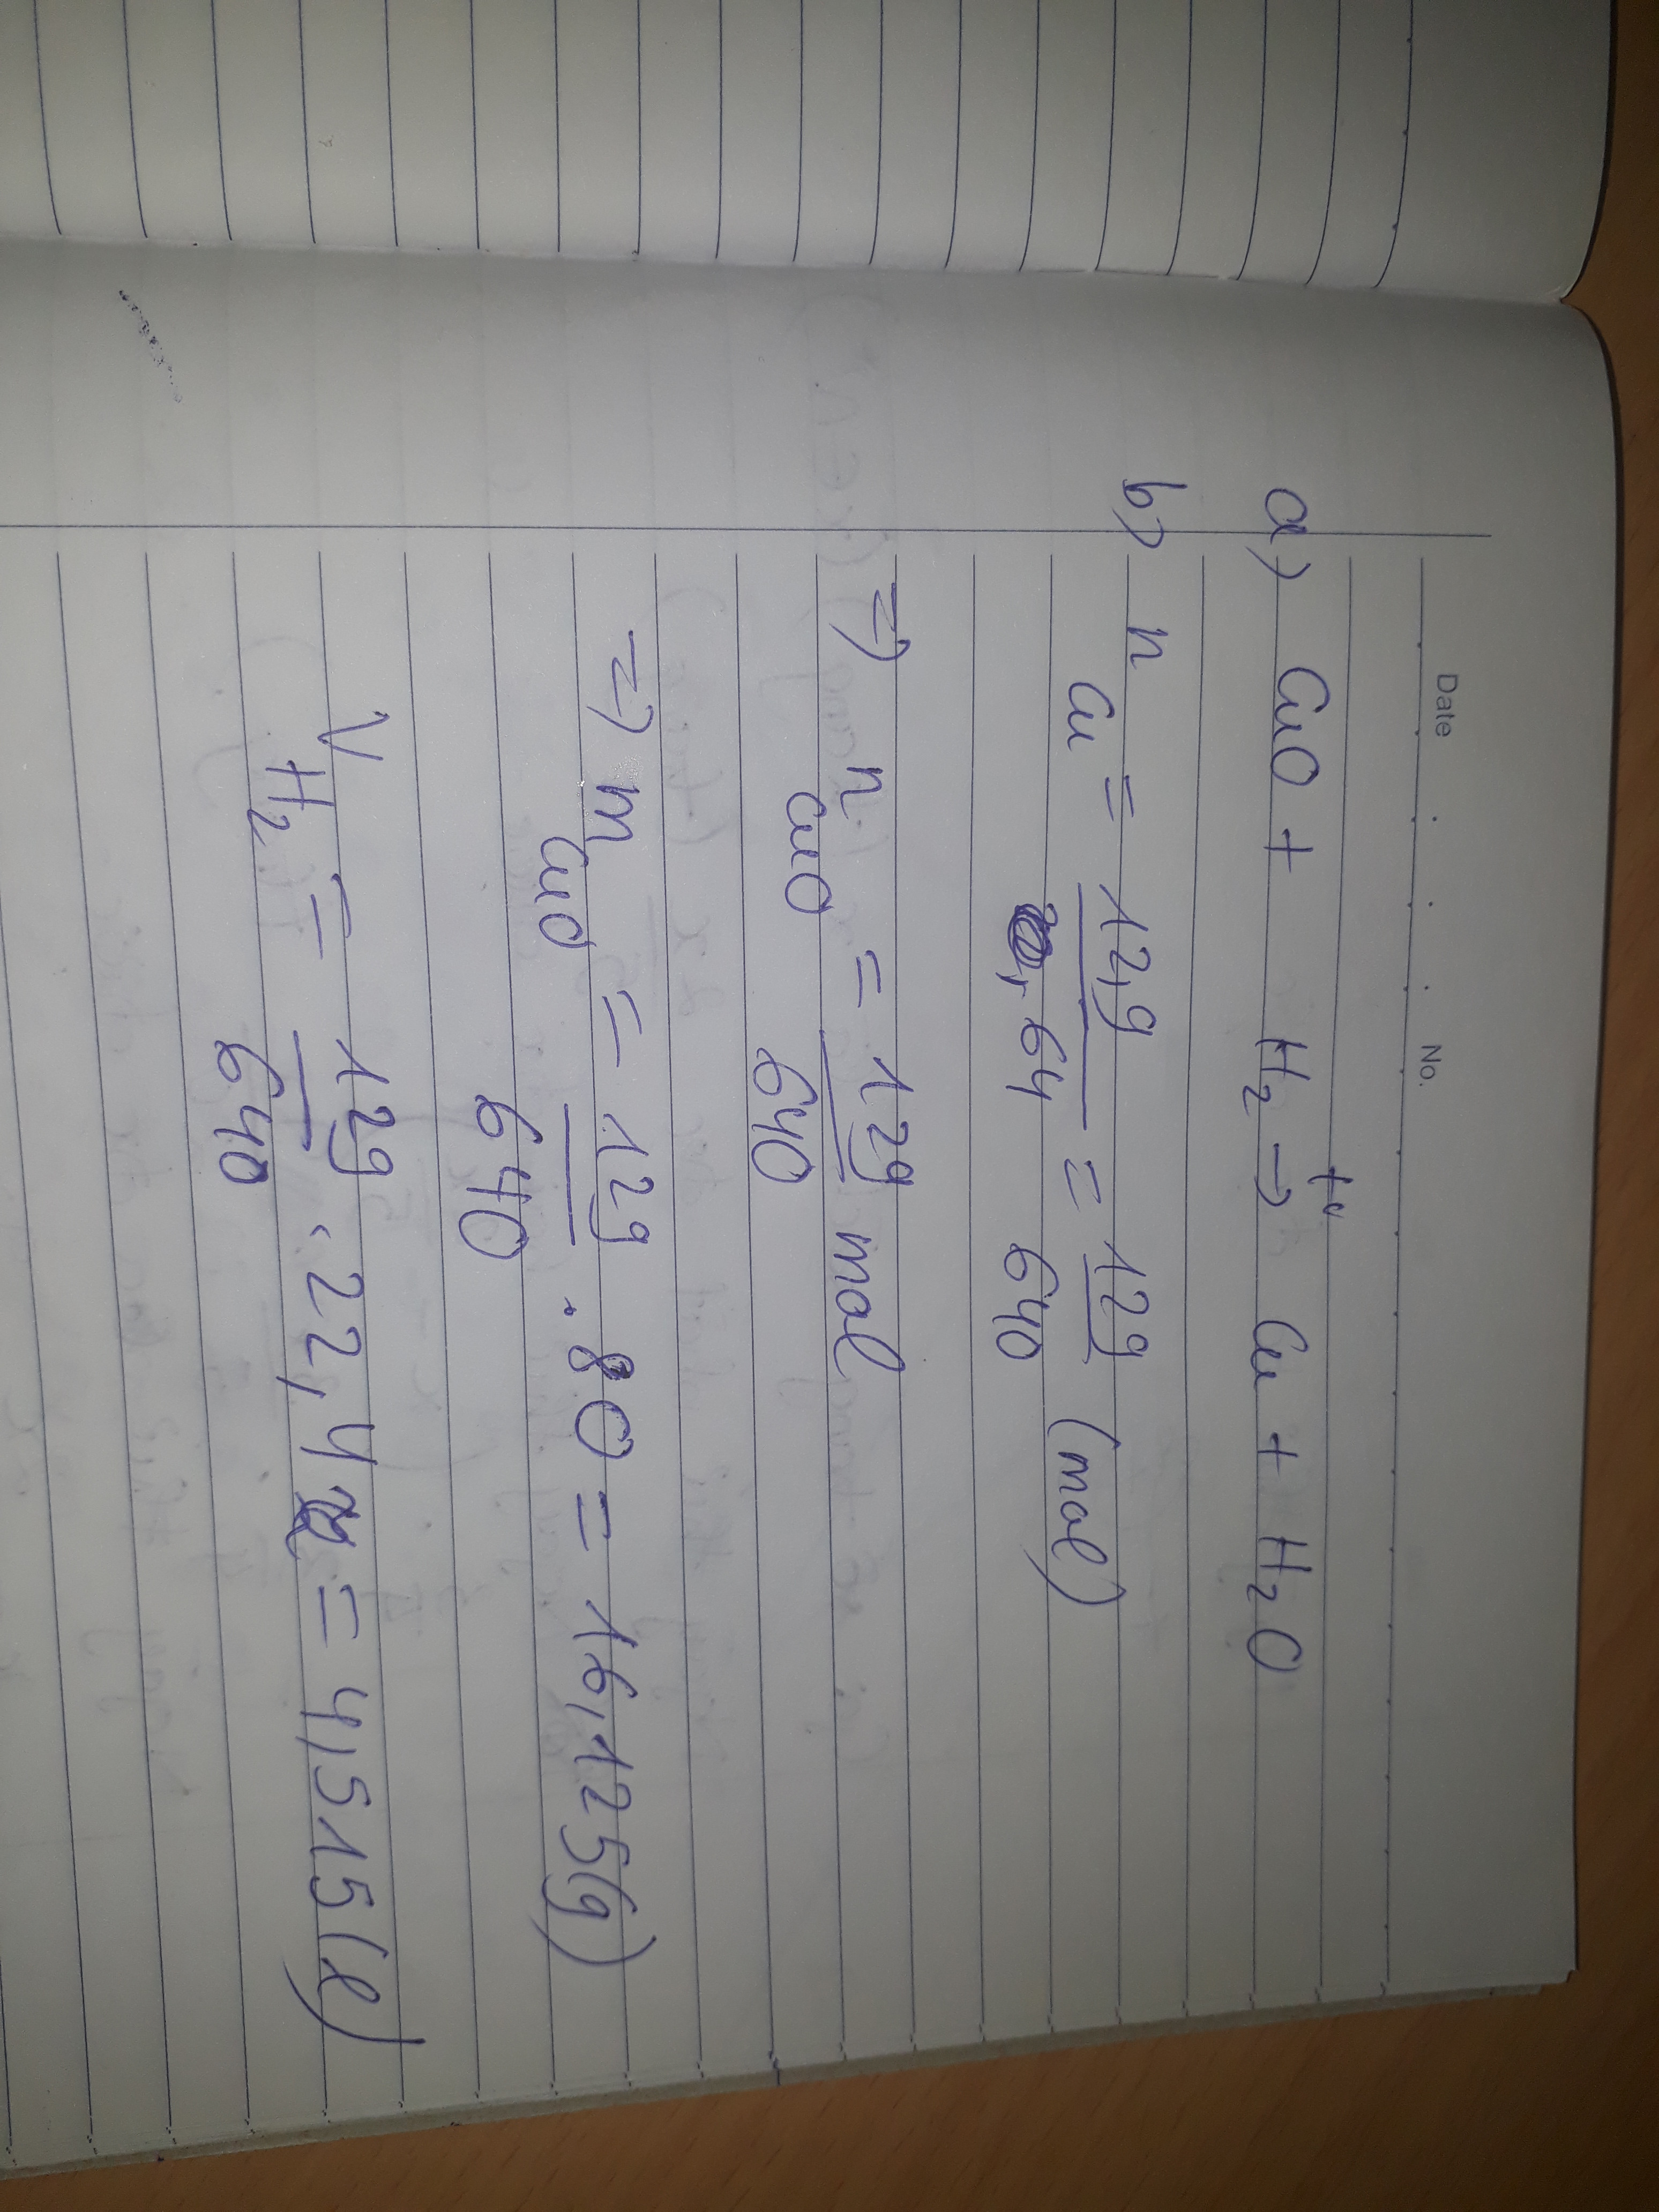 Date No.
a) CuO + H₂ →t° Cu + H₂O
b) n Cu = 12,9/64 = 129/640 (mol)
=> n CuO = 129/640 mol
=> m CuO = 129/640 . 80 = 16,125(g)
V H₂ = 129/640 . 22,4 = 4,515(l)